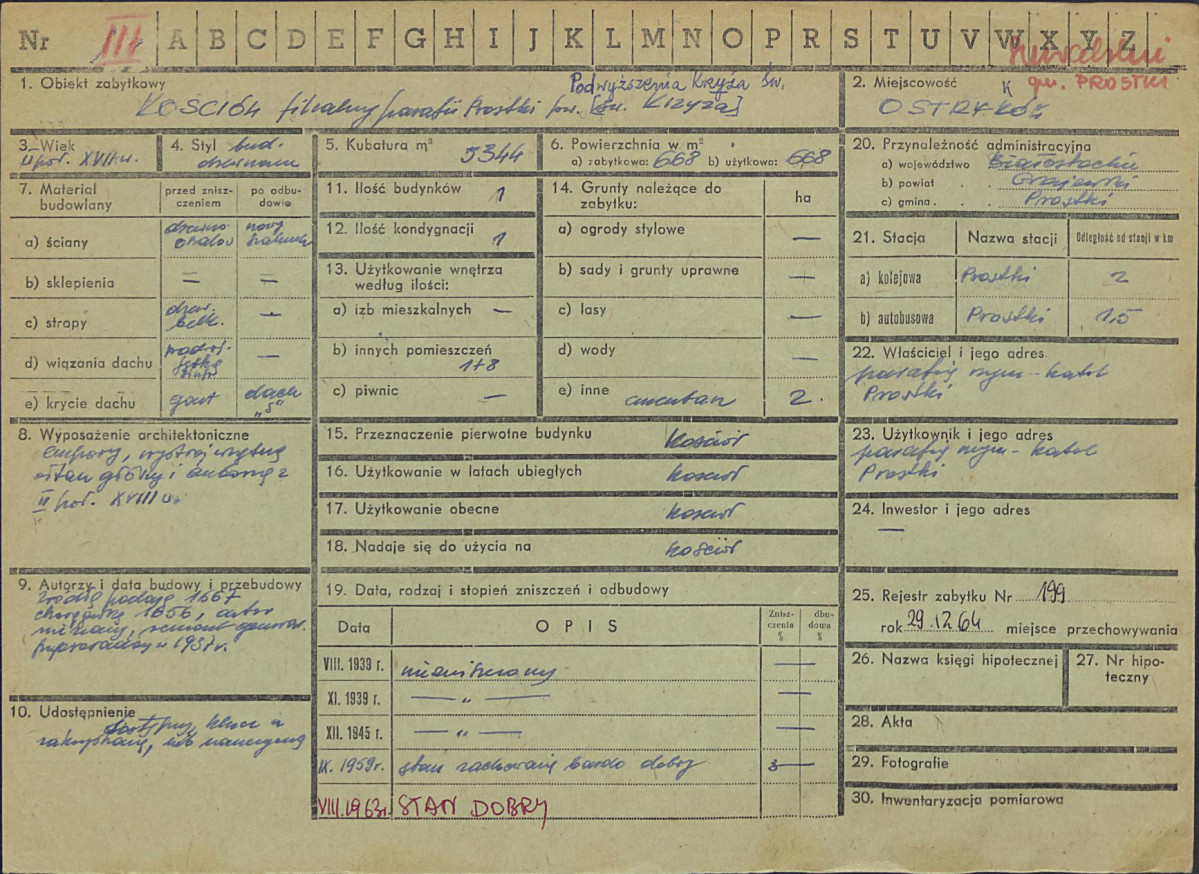 Nr III A B C D E F G H I J K L M N O P R S T U V W X Y Z
gm. PROSTKI
1. Obiekt zabytkowy
Podwyższenia Krzyża Św.
KOŚCIÓŁ filialny parafii Prostki pw. [św. Krzyża]
2. Miejscowość
K
OSTRYKÓŁ
3. Wiek
II poł. XVII w.
4. Styl bud.
drewniane
5. Kubatura m³
5344
6. Powierzchnia w m²
a) zabytkowa: 668 b) użytkowa: 668
20. Przynależność administracyjna
a) województwo Białostockie
b) powiat . . Grajewski
c) gmina . . Prostki
7. Materiał budowlany
przed zniszczeniem
po odbudowie
a) ściany
drewno
nowy
b) sklepienia = =
c) stropy drew. belk. —
d) wiązania dachu —
e) krycie dachu gont dach „S”
11. Ilość budynków 1
12. Ilość kondygnacji 1
13. Użytkowanie wnętrza według ilości:
a) izb mieszkalnych —
b) innych pomieszczeń
1+8
c) piwnic —
14. Grunty należące do zabytku:
ha
a) ogrody stylowe —
b) sady i grunty uprawne —
c) lasy —
d) wody —
e) inne cmentarz 2.
21. Stacja Nazwa stacji Odległość od stacji w km
a) kolejowa Prostki 2
b) autobusowa Prostki 1,5
22. Właściciel i jego adres
parafia rzym-katol
Prostki
8. Wyposażenie architektoniczne
empory, wystrój wnętrza
ołtarz główny i ambona z
II poł. XVIII w.
15. Przeznaczenie pierwotne budynku kościół
16. Użytkowanie w latach ubiegłych kościół
17. Użytkowanie obecne kościół
18. Nadaje się do użycia na kościół
23. Użytkownik i jego adres
parafia rzym-katol
Prostki
24. Inwestor i jego adres
—
9. Autorzy i data budowy i przebudowy
źródła podają 1667
chorągiewka 1656, autor
nieznany, remont general.
przeprowadzony w 1937 r.
10. Udostępnienie
dostępny, klucz u
zakrystiana, lub nauczyciela
19. Data, rodzaj i stopień zniszczeń i odbudowy
Data OPIS Zniszczenia % dbudowa %
VIII. 1939 r. niezniszczony —
XI. 1939 r. — „ — —
XII. 1945 r. — „ — —
IX. 1959 r. stan zachowania bardo dobry
VIII.1963r. STAN DOBRY
25. Rejestr zabytku Nr 199
rok 29.12.64 miejsce przechowywania
26. Nazwa księgi hipotecznej
27. Nr hipoteczny
28. Akta
29. Fotografie
30. Inwentaryzacja pomiarowa